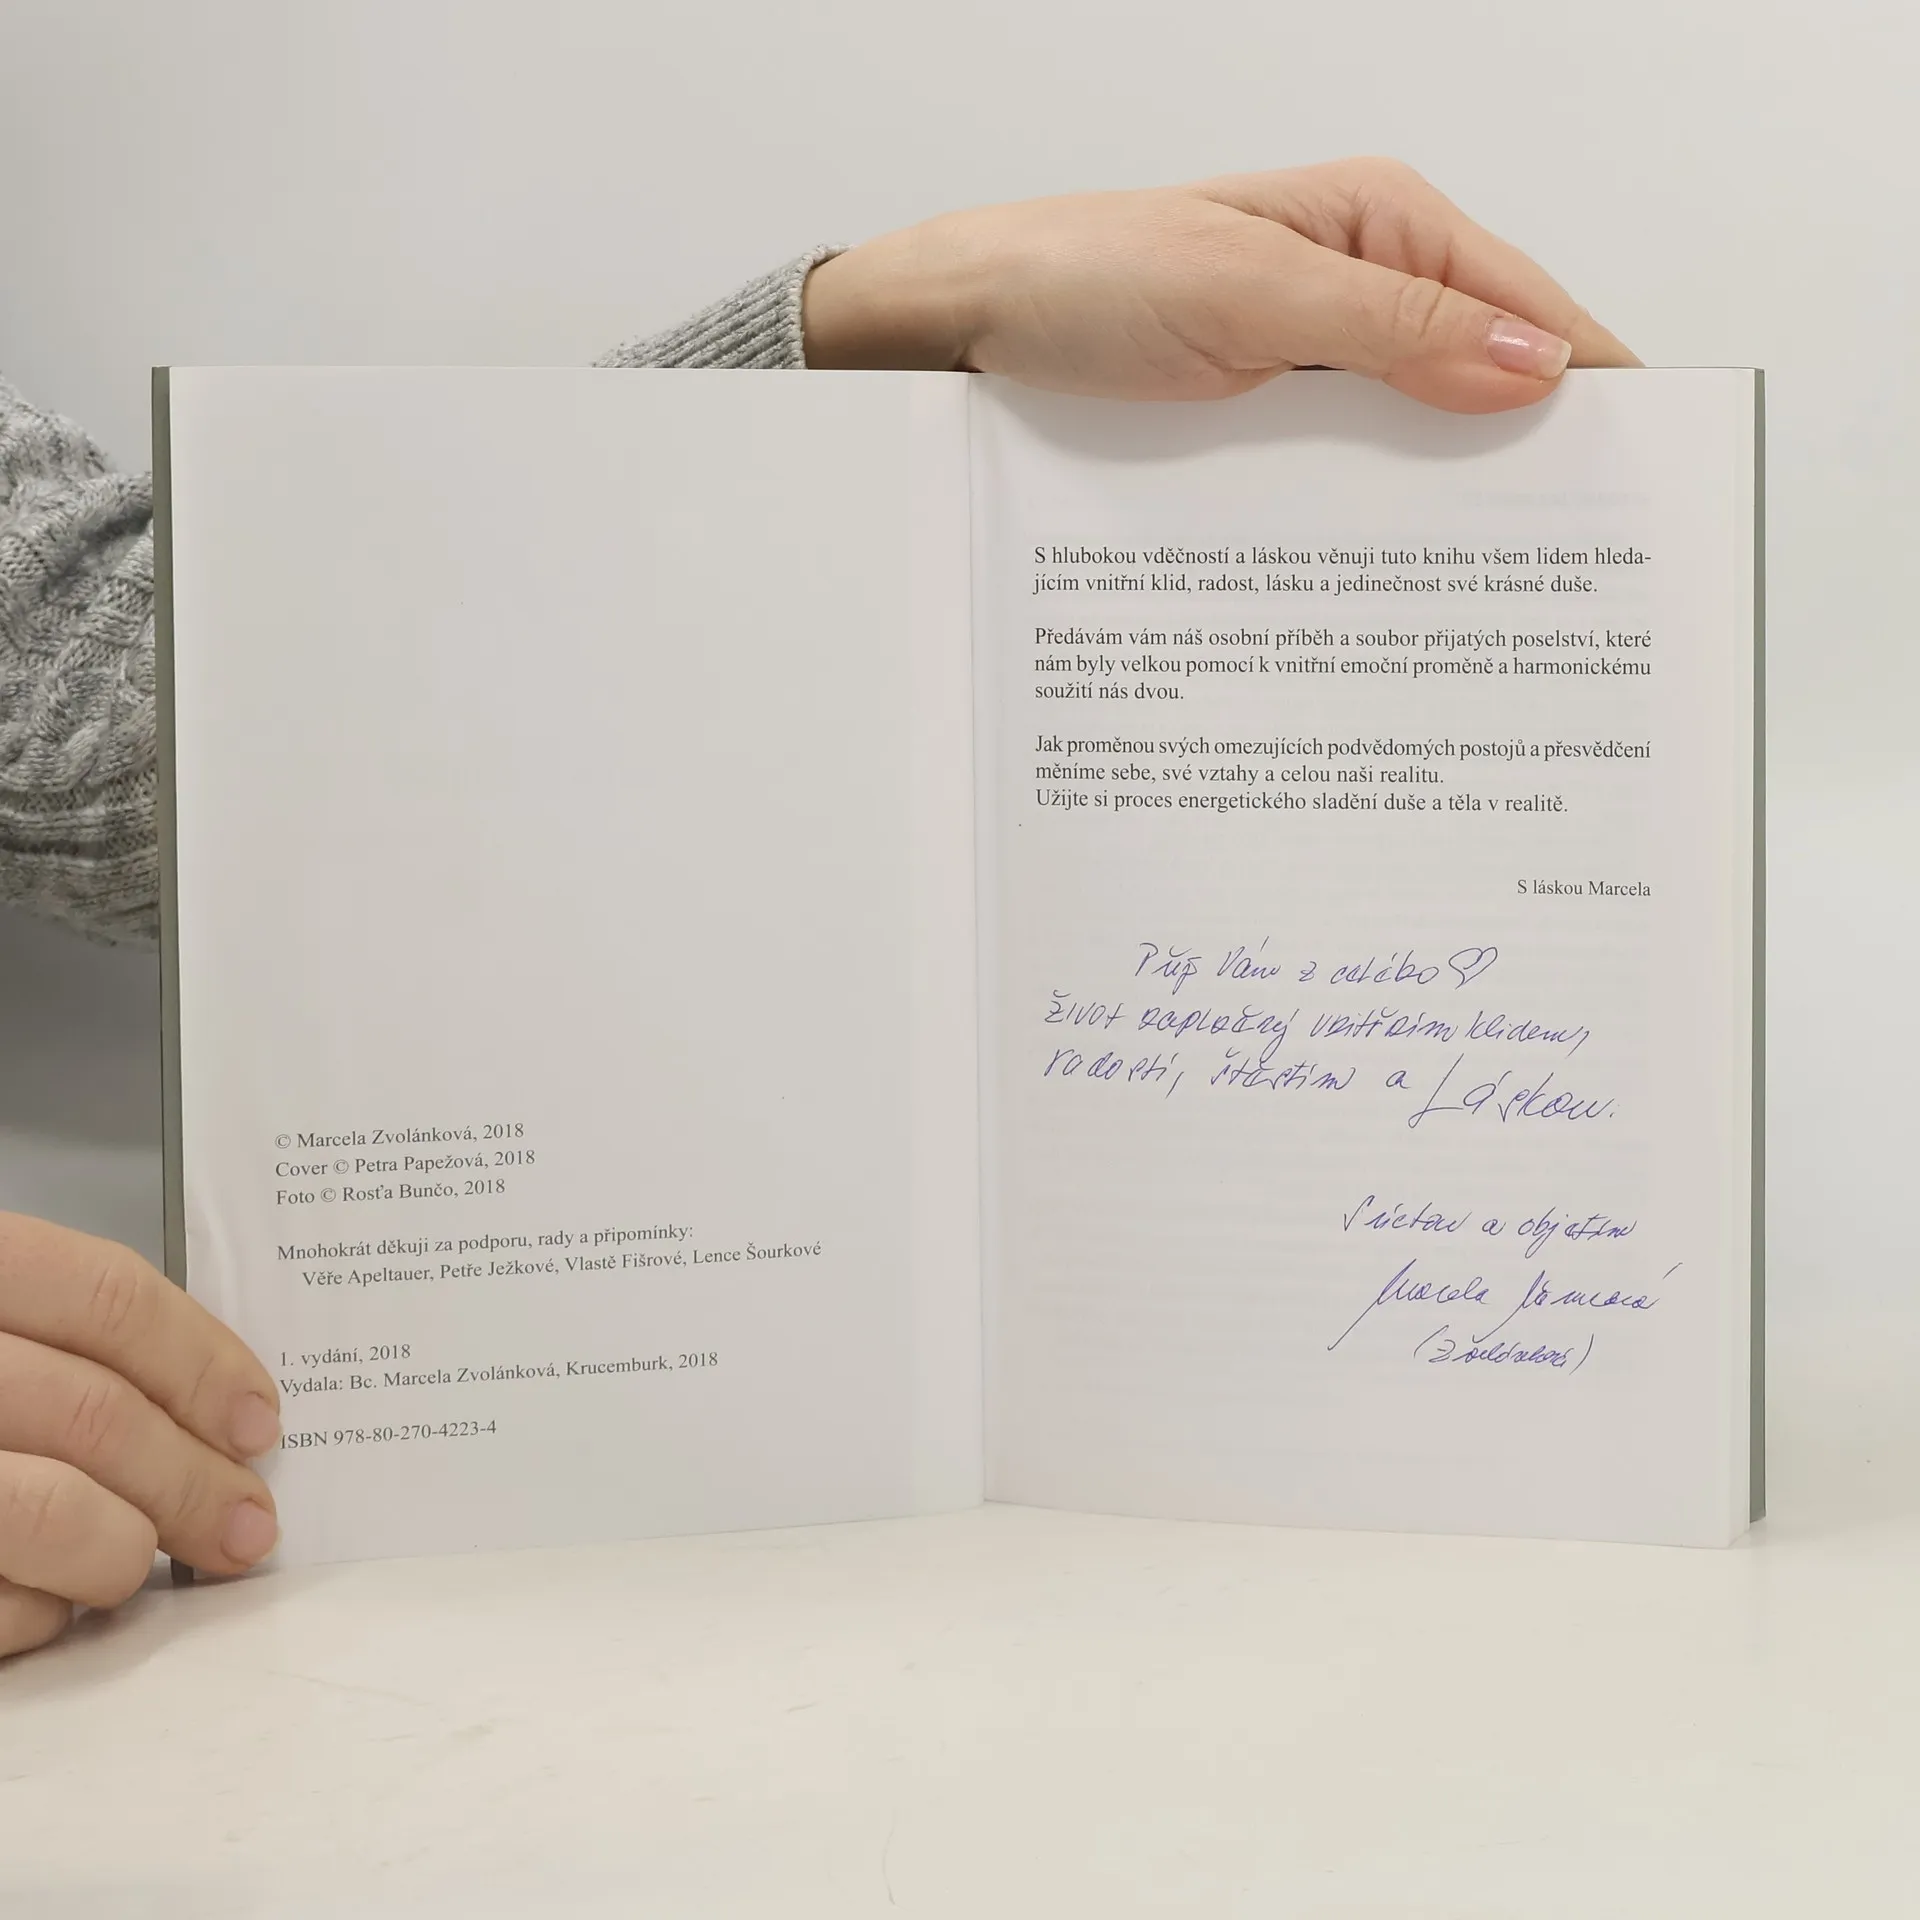 © Marcela Zvolánková, 2018
Cover © Petra Papežová, 2018
Foto © Rosťa Bunčo, 2018
Mnohokrát děkuji za podporu, rady a připomínky:
Věře Apeltauer, Petře Ježkové, Vlastě Fišrové, Lence Šourkové
1. vydání, 2018
Vydala: Bc. Marcela Zvolánková, Krucemburk, 2018
ISBN 978-80-270-4223-4
S hlubokou vděčností a láskou věnuji tuto knihu všem lidem hleda-
jícím vnitřní klid, radost, lásku a jedinečnost své krásné duše.
Předávám vám náš osobní příběh a soubor přijatých poselství, které
nám byly velkou pomocí k vnitřní emoční proměně a harmonickému
soužití nás dvou.
Jak proměnou svých omezujících podvědomých postojů a přesvědčení
měníme sebe, své vztahy a celou naši realitu.
Užijte si proces energetického sladění duše a těla v realitě.
S láskou Marcela
Přeji Vám z celého ♡
život naplněný vnitřním klidem,
radostí, štěstím a Láskou.
S úctou a objetím
Marcela
(Zvolánková)